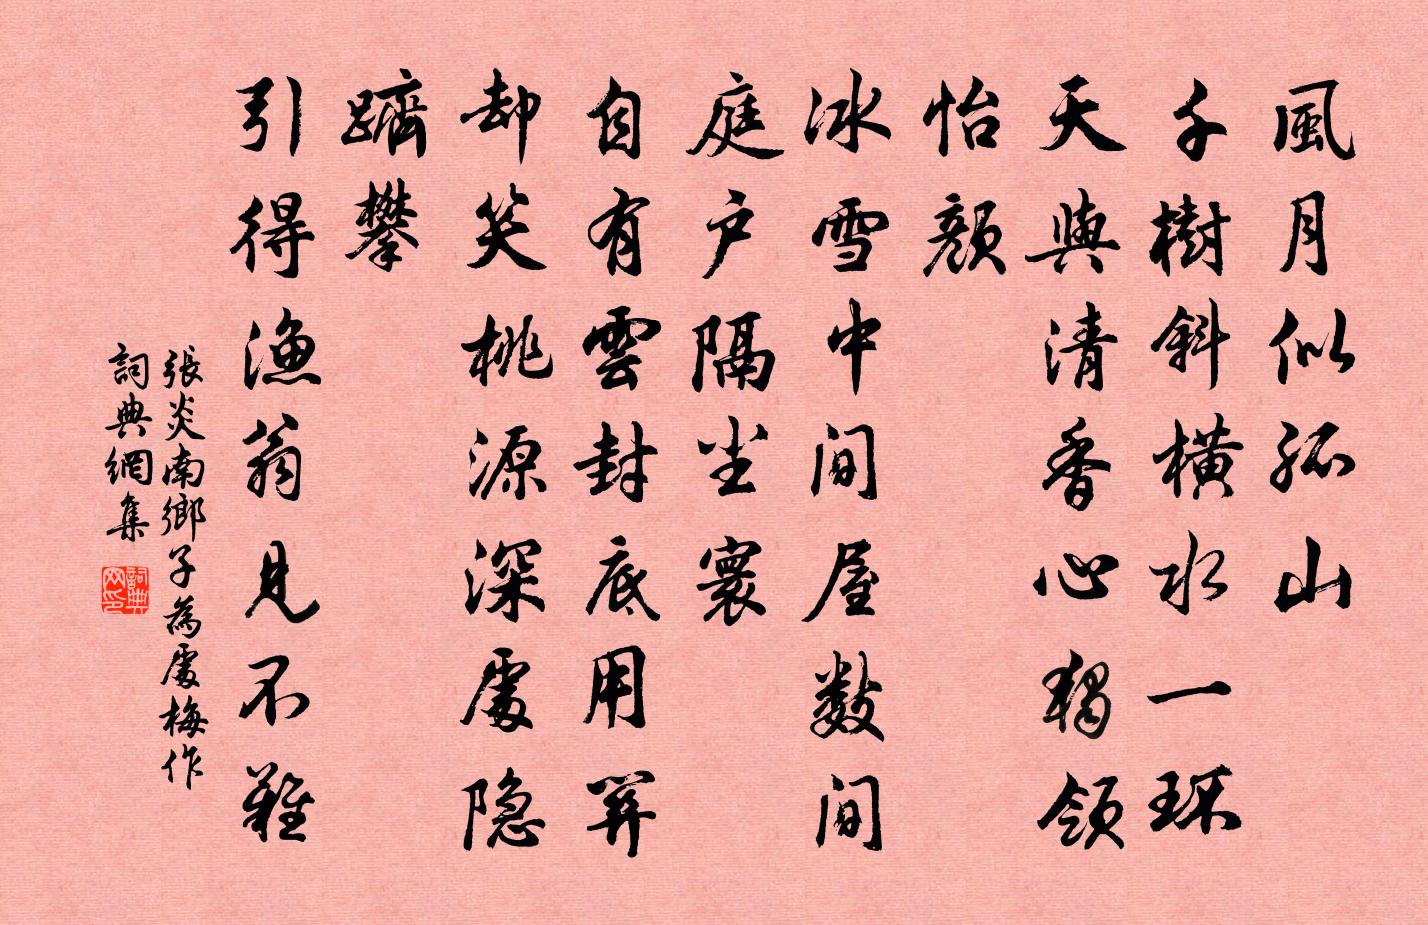 風月似孤山
千樹斜橫水一环
天與清香心獨領
怡顏
冰雪中間屋数間
庭户隔尘寰
自有雲封底用關
却笑桃源深處隐
躋攀
引得漁翁見不難
張炎南鄉子為處梅作
詞典網集
詞典网印